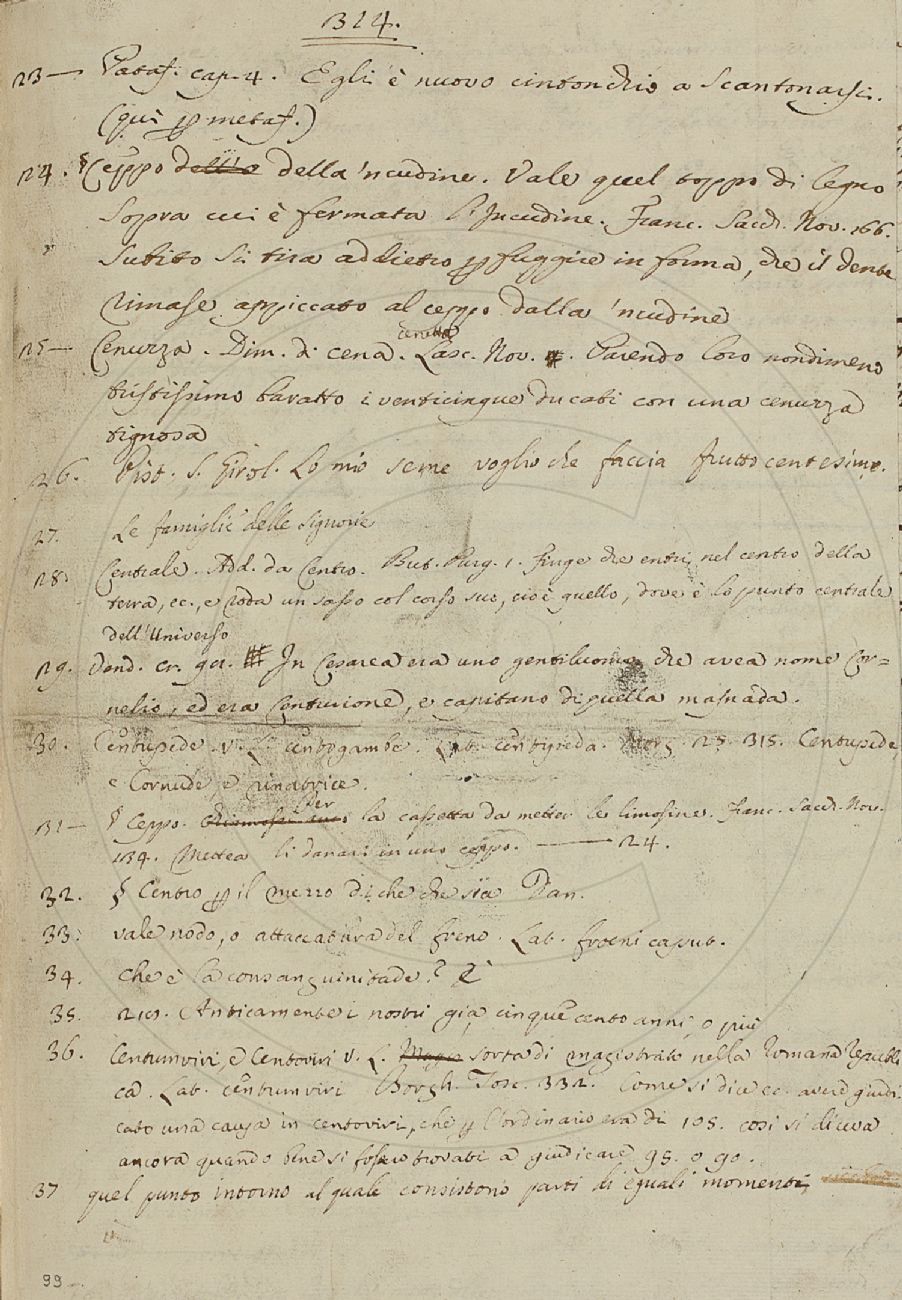 324.
23 — Pataf. cap. 4. Egli è nuovo cintonchio a scantonarsi.
(quì p metaf.)
24. § Ceppo dell'o della 'ncudine. Vale quel toppo di legno
sopra cui è fermata l'Incudine. Franc. Sacch. Nov. 166.
Subito si tira addietro p fuggire in forma, che il dente
rimase appiccato al ceppo dalla 'ncudine
25 — Cenuzza. Dim. di cena. cenetta Lasc. Nov. 4. Parendo loro nondimeno
tristissimo baratto i venticinque ducati con una cenuzza
tignosa
26. Pist. S. Girol. Lo mio seme voglio che faccia frutto centesimo.
27. Le famiglie delle signorie
28. Centrale. Add. da Centro. But. Purg. 1. Finge che entri nel centro della
terra, ec., e roda un sasso col corso suo, cioè quello, dove è lo punto centrale
dell'Universo
29. Dond. cr. In Cesarea era uno gentiluomo, che avea nome Cor=
nelio, ed era Centurione, e capitano di quella masnada.
30. Centupede. v. L. centogambe. Lat. centipeda. Morg. 25. 315. Centupede,
e Cornude, e
31 — § Ceppo. Per la cassetta da metter le limosine. Franc. Sacch. Nov.
134. Mettea li danari in uno ceppo. — 24.
32. § Centro p il mezzo di che che sia Dan.
33. vale nodo, o attaccatura del freno. Lat. froeni caput.
34. Che è la consanguinitade? È
35. 219. Anticamente i nostri già cinque cento anni, o più
36. Centumviri, e Centoviri V. L. sorta di magistrato nella Romana Repubbli
ca. Lat. centumviri Borgh. Tosc. 332. Come si dice ec. avere giudi
cato una causa in centoviri, che p l'ordinario era di 105. così si diceva
ancora quando bene si fossero trovati a giudicare 95. o 90.
37 quel punto intorno al quale consistono parti di eguali momenti,
99